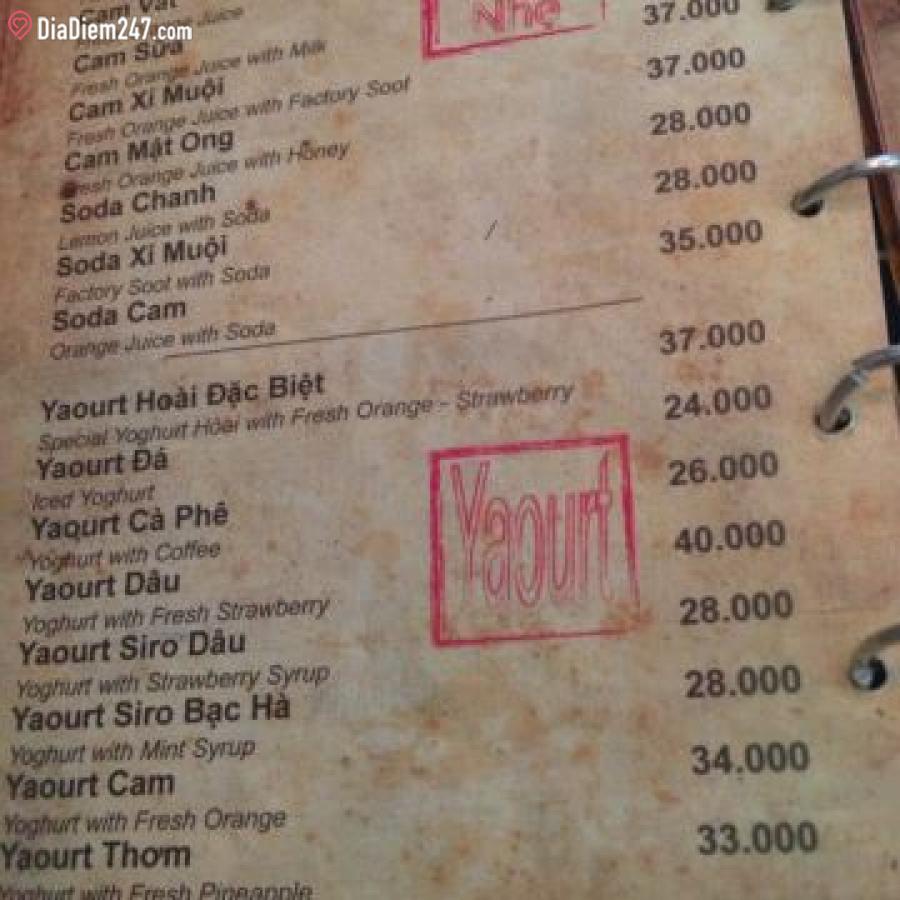 DiaDiem247.com
Cam Vắt
Juice
Nhẹ
37.000
Cam Sữa
Fresh Orange Juice with Milk
37.000
Cam Xí Muội
Fresh Orange Juice with Factory Soot
28.000
Cam Mật Ong
Fresh Orange Juice with Honey
28.000
Soda Chanh
Lemon Juice with Soda
35.000
Soda Xí Muội
Factory Soot with Soda
Soda Cam
Orange Juice with Soda
37.000
Yaourt Hoài Đặc Biệt
Special Yoghurt Hoai with Fresh Orange - Strawberry
24.000
Yaourt Đá
Iced Yoghurt
26.000
Yaourt Cà Phê
Yoghurt with Coffee
Yaourt
40.000
Yaourt Dâu
Yoghurt with Fresh Strawberry
28.000
Yaourt Siro Dâu
Yoghurt with Strawberry Syrup
28.000
Yaourt Siro Bạc Hà
Yoghurt with Mint Syrup
34.000
Yaourt Cam
Yoghurt with Fresh Orange
33.000
Yaourt Thơm
Yoghurt with Fresh Pineapple